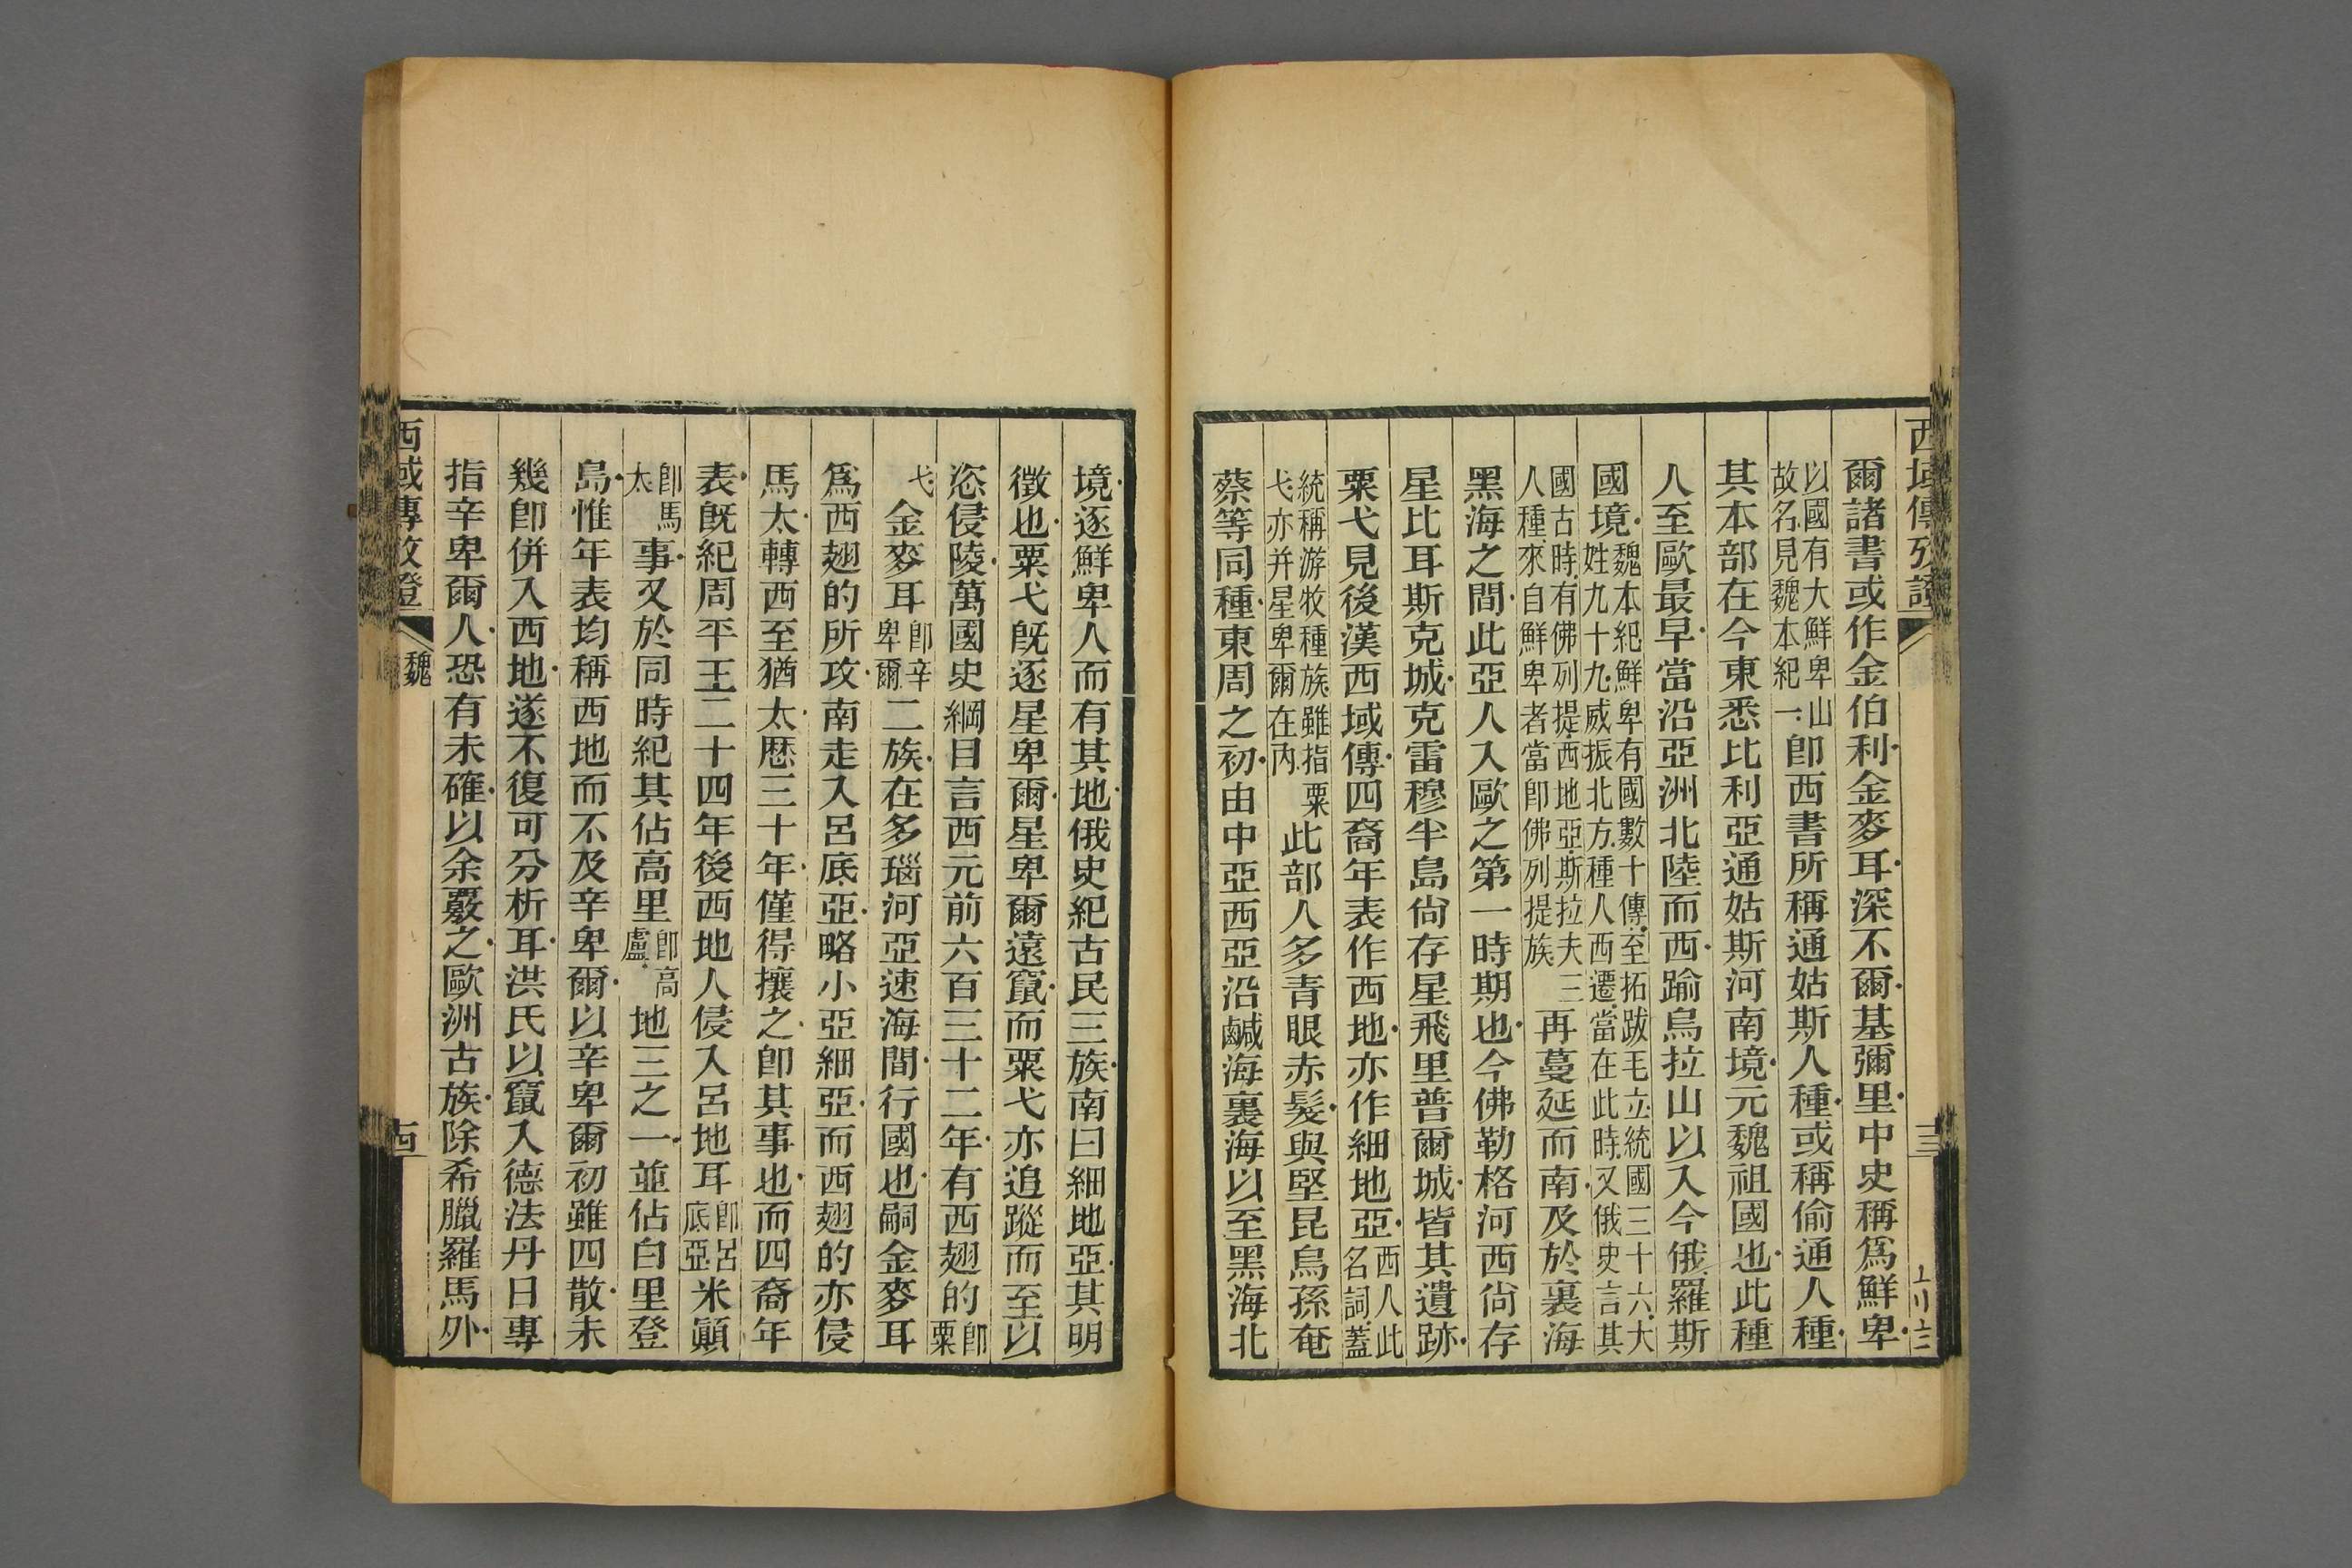 西域傳攷證
爾諸書或作金伯利金麥耳深不爾基彌里中史稱爲鮮卑
以國有大鮮卑山故名見魏本紀一卽西書所稱通姑斯人種或稱偷通人種
其本部在今東悉比利亞通姑斯河南境元魏祖國也此種
人至歐最早當沿亞洲北陸而西踰烏拉山以入今俄羅斯
國境魏本紀鮮卑有國數十傳至拓跋毛立統國三十六大姓九十九威振北方種人西遷當在此時又俄史言其
國古時有佛列提西地亞斯拉夫三人種來自鮮卑者當卽佛列提族再蔓延而南及於裏海
黑海之間此亞人入歐之第一時期也今佛勒格河西尙存
星比耳斯克城克雷穆半島尙存星飛里普爾城皆其遺跡
粟弋見後漢西域傳四裔年表作西地亦作細地亞西人此名詞蓋
統稱游牧種族雖指粟弋亦幷星卑爾在內此部人多青眼赤髮與堅昆烏孫奄
蔡等同種東周之初由中亞西亞沿鹹海裏海以至黑海北
境逐鮮卑人而有其地俄史紀古民三族南曰細地亞其明
徵也粟弋旣逐星卑爾星卑爾遠竄而粟弋亦追蹤而至以
恣侵陵萬國史綱目言西元前六百三十二年有西翅的卽粟
弋金麥耳卽辛卑爾二族在多瑙河亞速海間行國也嗣金麥耳
爲西翅的所攻南走入呂底亞略小亞細亞而西翅的亦侵
馬太轉西至猶太歷三十年僅得攘之卽其事也而四裔年
表旣紀周平王二十四年後西地人侵入呂地耳卽呂底亞米顚
卽馬太事又於同時紀其佔高里卽高盧地三之一並佔白里登
島惟年表均稱西地而不及辛卑爾以辛卑爾初雖四散未
幾卽併入西地遂不復可分析耳洪氏以竄入德法丹日專
指辛卑爾人恐有未確以余覈之歐洲古族除希臘羅馬外
西域傳攷證
魏